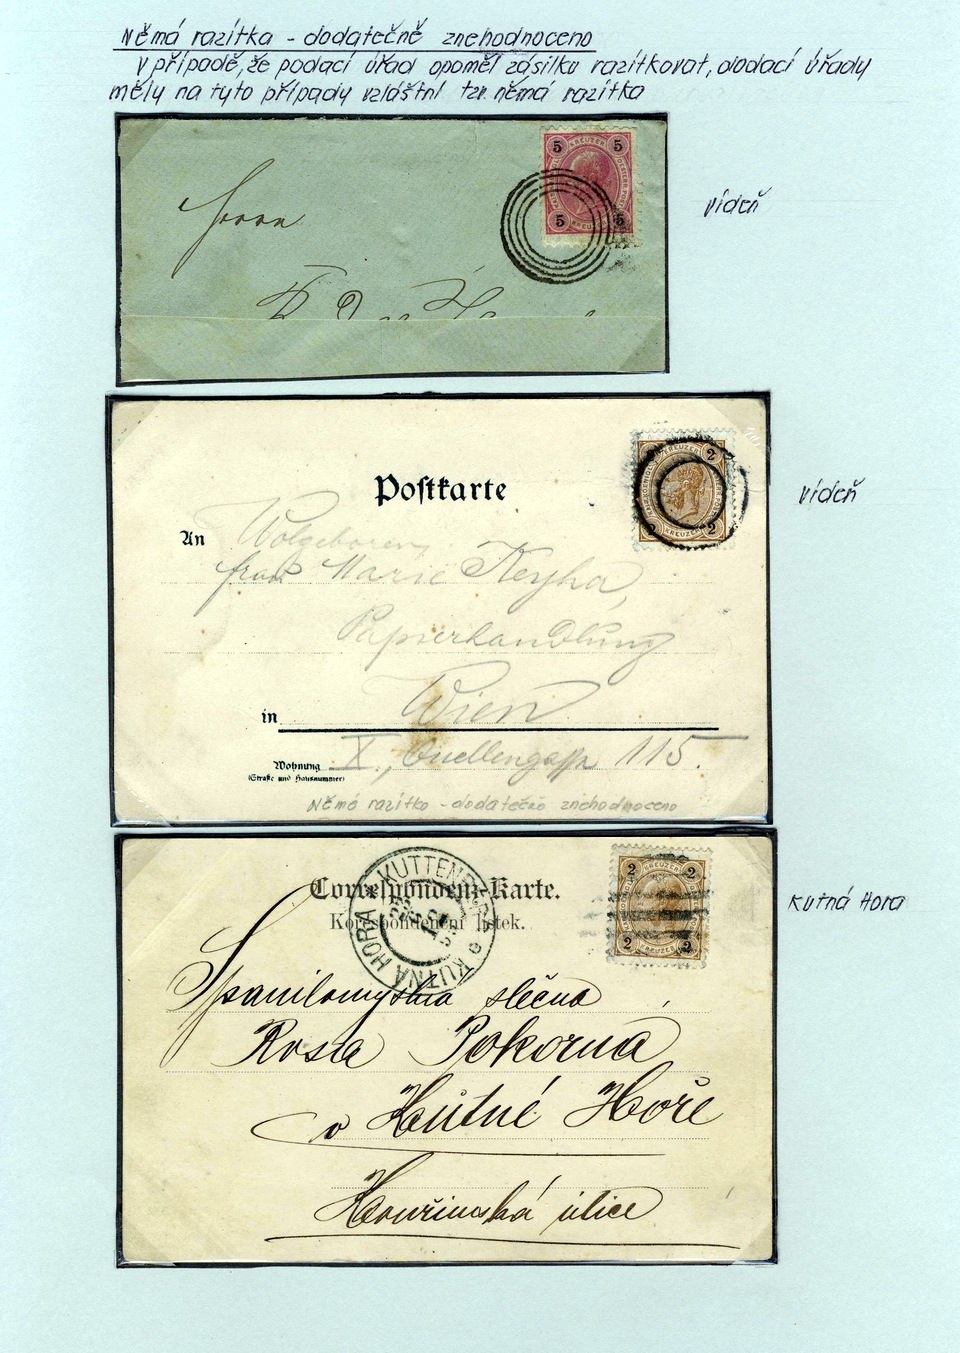 Němá razítka - dodatečně znehodnoceno
V případě, že podací úřad opoměl zásilku razítkovat, dodací úřady
měly na tyto případy vzláštní tzv. němá razítka
5 KREUZER 5
5 KREUZER 5
Vídeň
Herrn
KREUZER 2
2 KREUZER 2
Vídeň
Postkarte
An Wolgeboren,
frau Marie Keyha,
Papierhandlung
in Wien
X., Quellengasse 115.
Wohnung
(Straße und Hausnummer)
Němá razítko - dodatečně znehodnoceno
KUTTENBERG
KUTNÁ HORA
2 KREUZER 2
2 KREUZER 2
Kutná Hora
Correspondenz-Karte.
Korespondenční lístek.
Spanilomyslná slečna
Rosta Pokorná
v Hutné Hoře
Kouřimská ulice